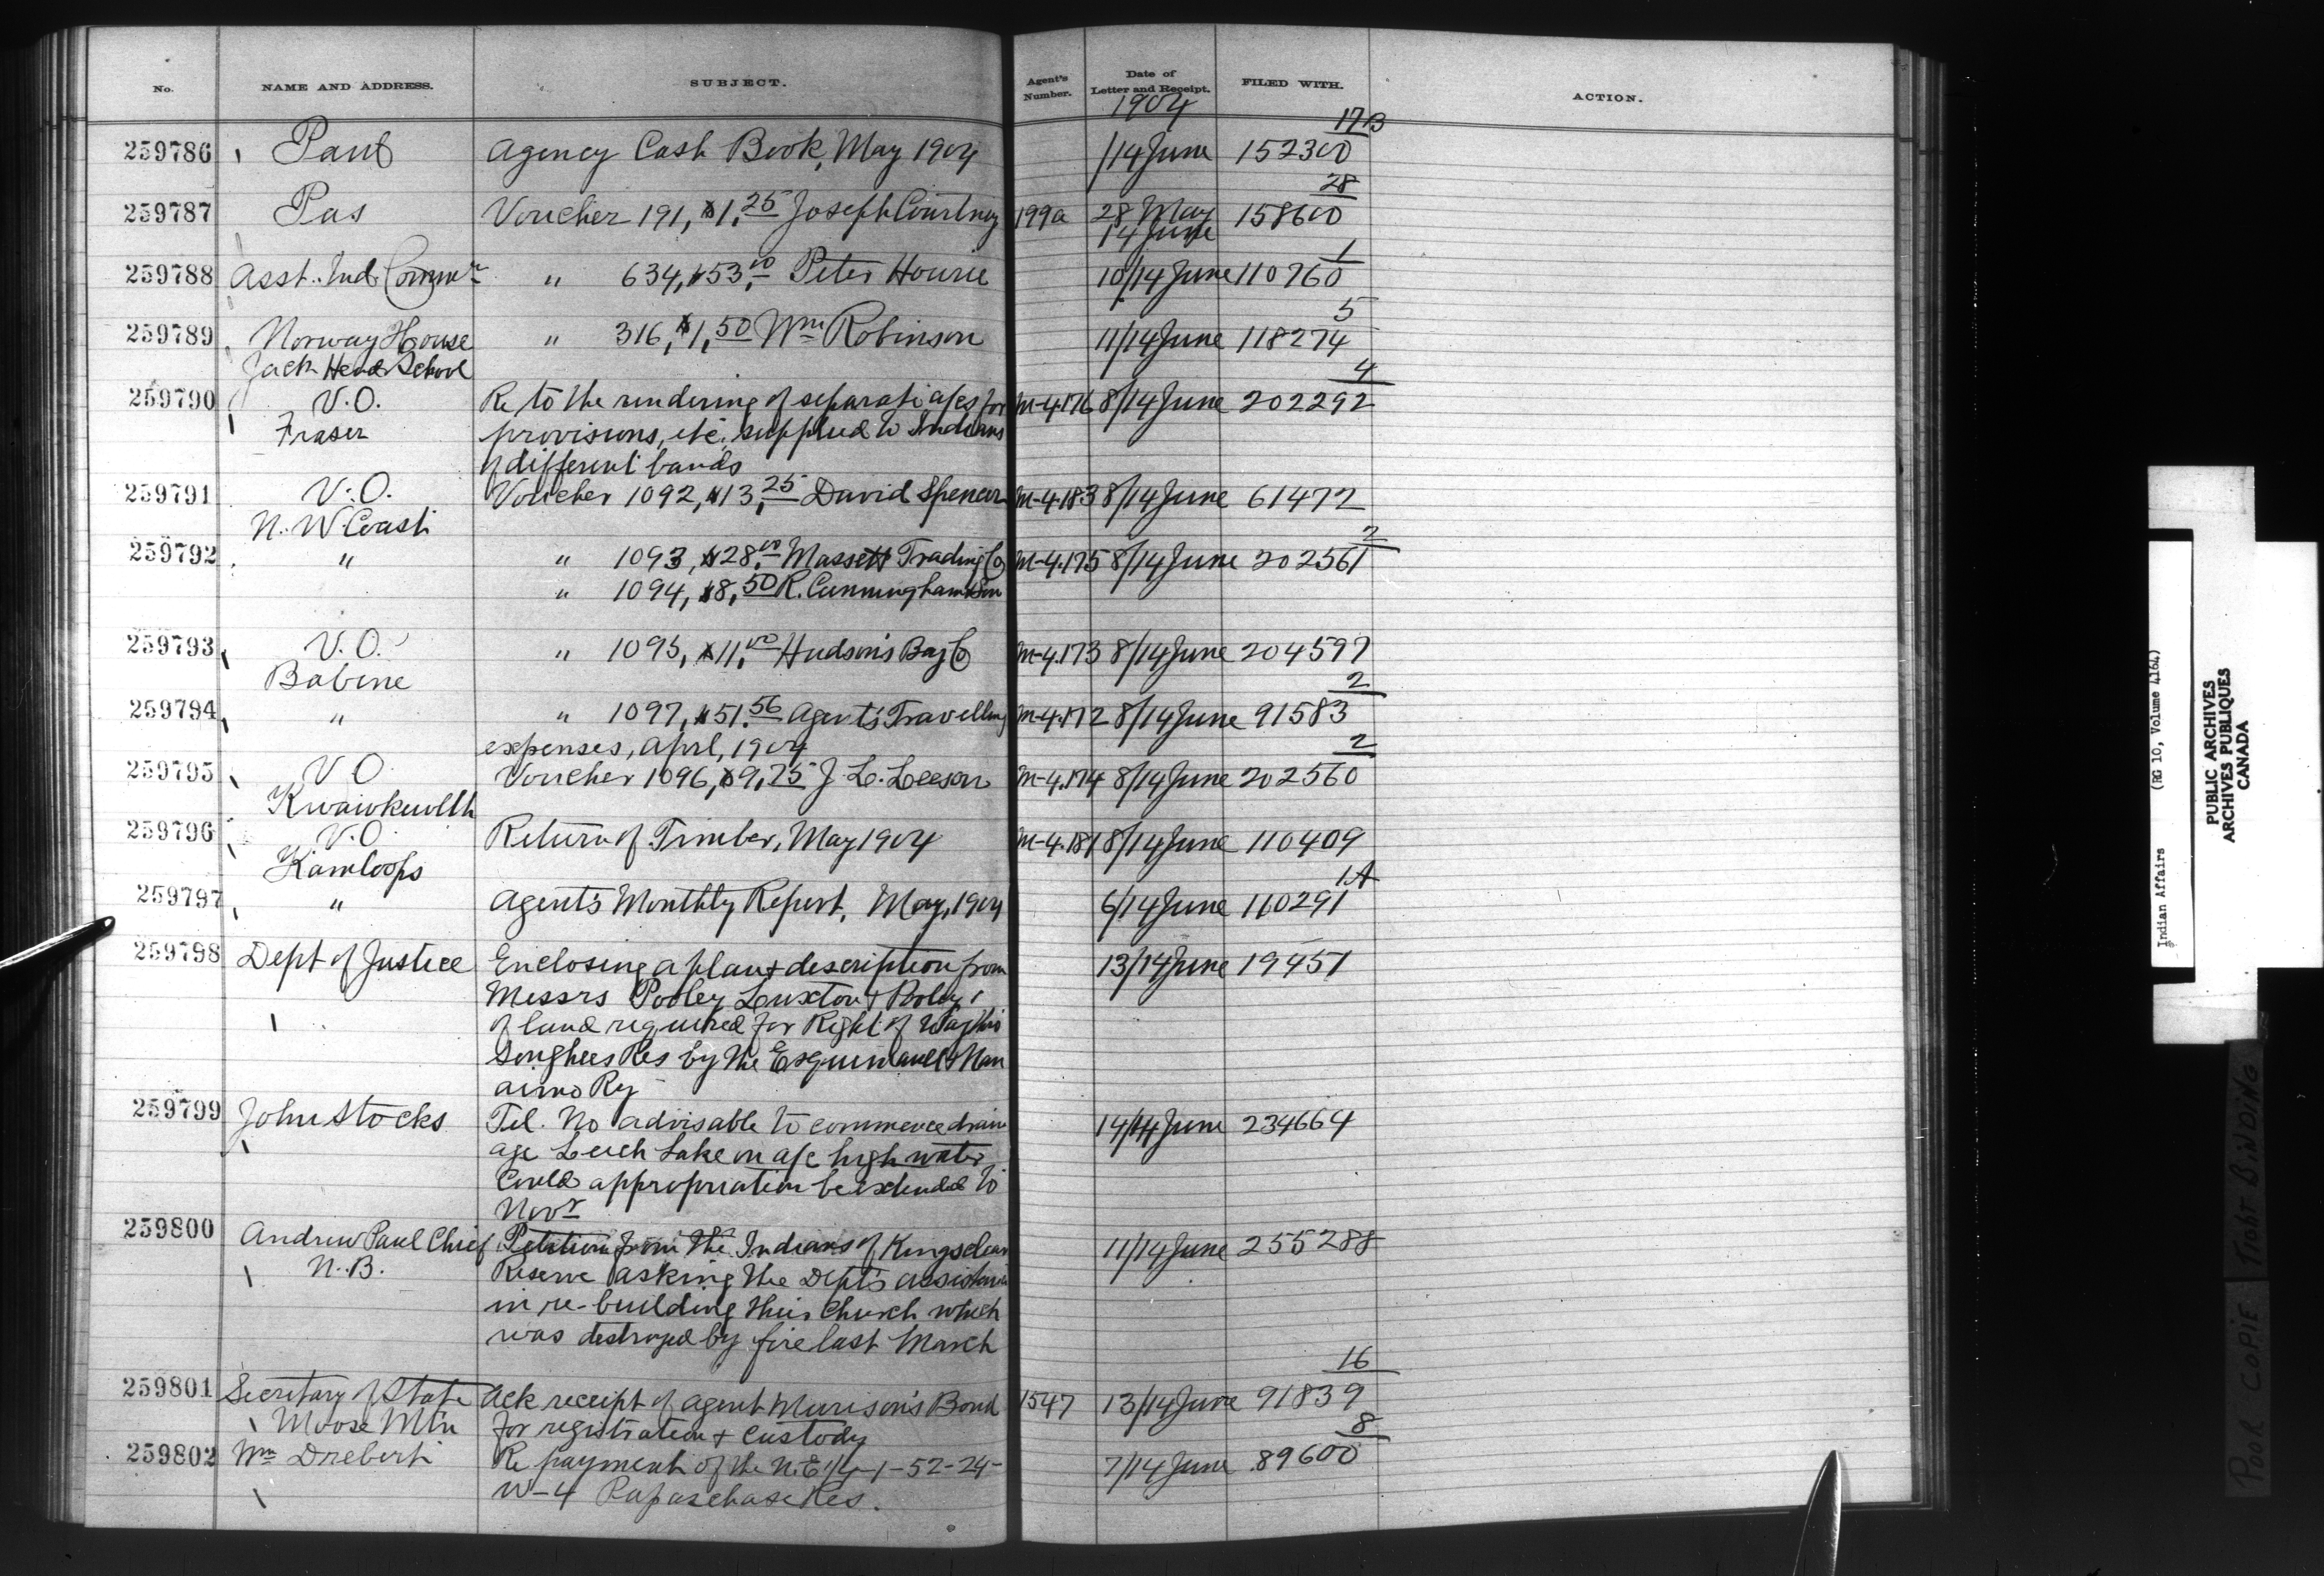 No. NAME AND ADDRESS. SUBJECT. Agent's Number. Date of Letter and Receipt. FILED WITH. ACTION.
1904
17B
259786 Agency Cash Book, May 1904 /14 June 152300
28
259787 Pas Voucher 191, $1.25 Joseph Courtney 199a 28 May 158600
14 June
1
259788 Asst. Ind. Commr " 634, $53.00 Peter Hourie 10/14 June 110760
5
259789 Norway House " 316, $1.50 Wm Robinson 11/14 June 118274
Jack Head School
4
259790 V.O. Re to the rendering of separate a/cs for M-4176 8/14 June 202292
Fraser provisions, etc. supplied to Indians
of different bands
259791 V.O. Voucher 1092, $13.25 David Spencer M-4183 8/14 June 61472
N. W. Coast
2
259792 " " 1093, $28.00 Massett Trading Co M-4175 8/14 June 202561
" 1094, $8.50 R. Cunningham & Son
259793 V.O. " 1095, $11.00 Hudson's Bay Co M-4173 8/14 June 204597
Babine
2
259794 " " 1097, $51.56 Agent's Travelling M-4172 8/14 June 91583
expenses, April, 1904
2
259795 V.O. Voucher 1096, $9.75 J. L. Leeson M-4174 8/14 June 202560
Kwawkewlth
259796 V.O. Return of Timber, May 1904 M-4181 8/14 June 110409
Kamloops
1A
259797 " Agent's Monthly Report, May, 1904 6/14 June 110291
259798 Dept of Justice Enclosing a plan & description from 13/14 June 19451
Messrs Pooley Luxton & Pooley,
of land required for Right of Way thro
Songhees Res by the Esquimault & Nan
aimo Ry
259799 John Stocks Tel. No advisable to commence drain 14/14 June 234664
age Leech Lake on a/c high water
Could appropriation be extended to
Novr
259800 Andrew Paul Chief Petition from the Indians of Kingsclear 11/14 June 255288
N.B. Reserve asking the Dept's assistance
in re-building their Church which
was destroyed by fire last March
16
259801 Secretary of State Ack receipt of Agent Murison's Bond 1547 13/14 June 91839
Moose Mtn for registration & custody
8
259802 Wm Drebert Re payment of the N.E 1/4-1-52-24- 7/14 June 89600
W-4 Papaschase Res.
Indian Affairs (RG 10, Volume 4164)
PUBLIC ARCHIVES
ARCHIVES PUBLIQUES
CANADA
POOR COPIE TIGHT BINDING